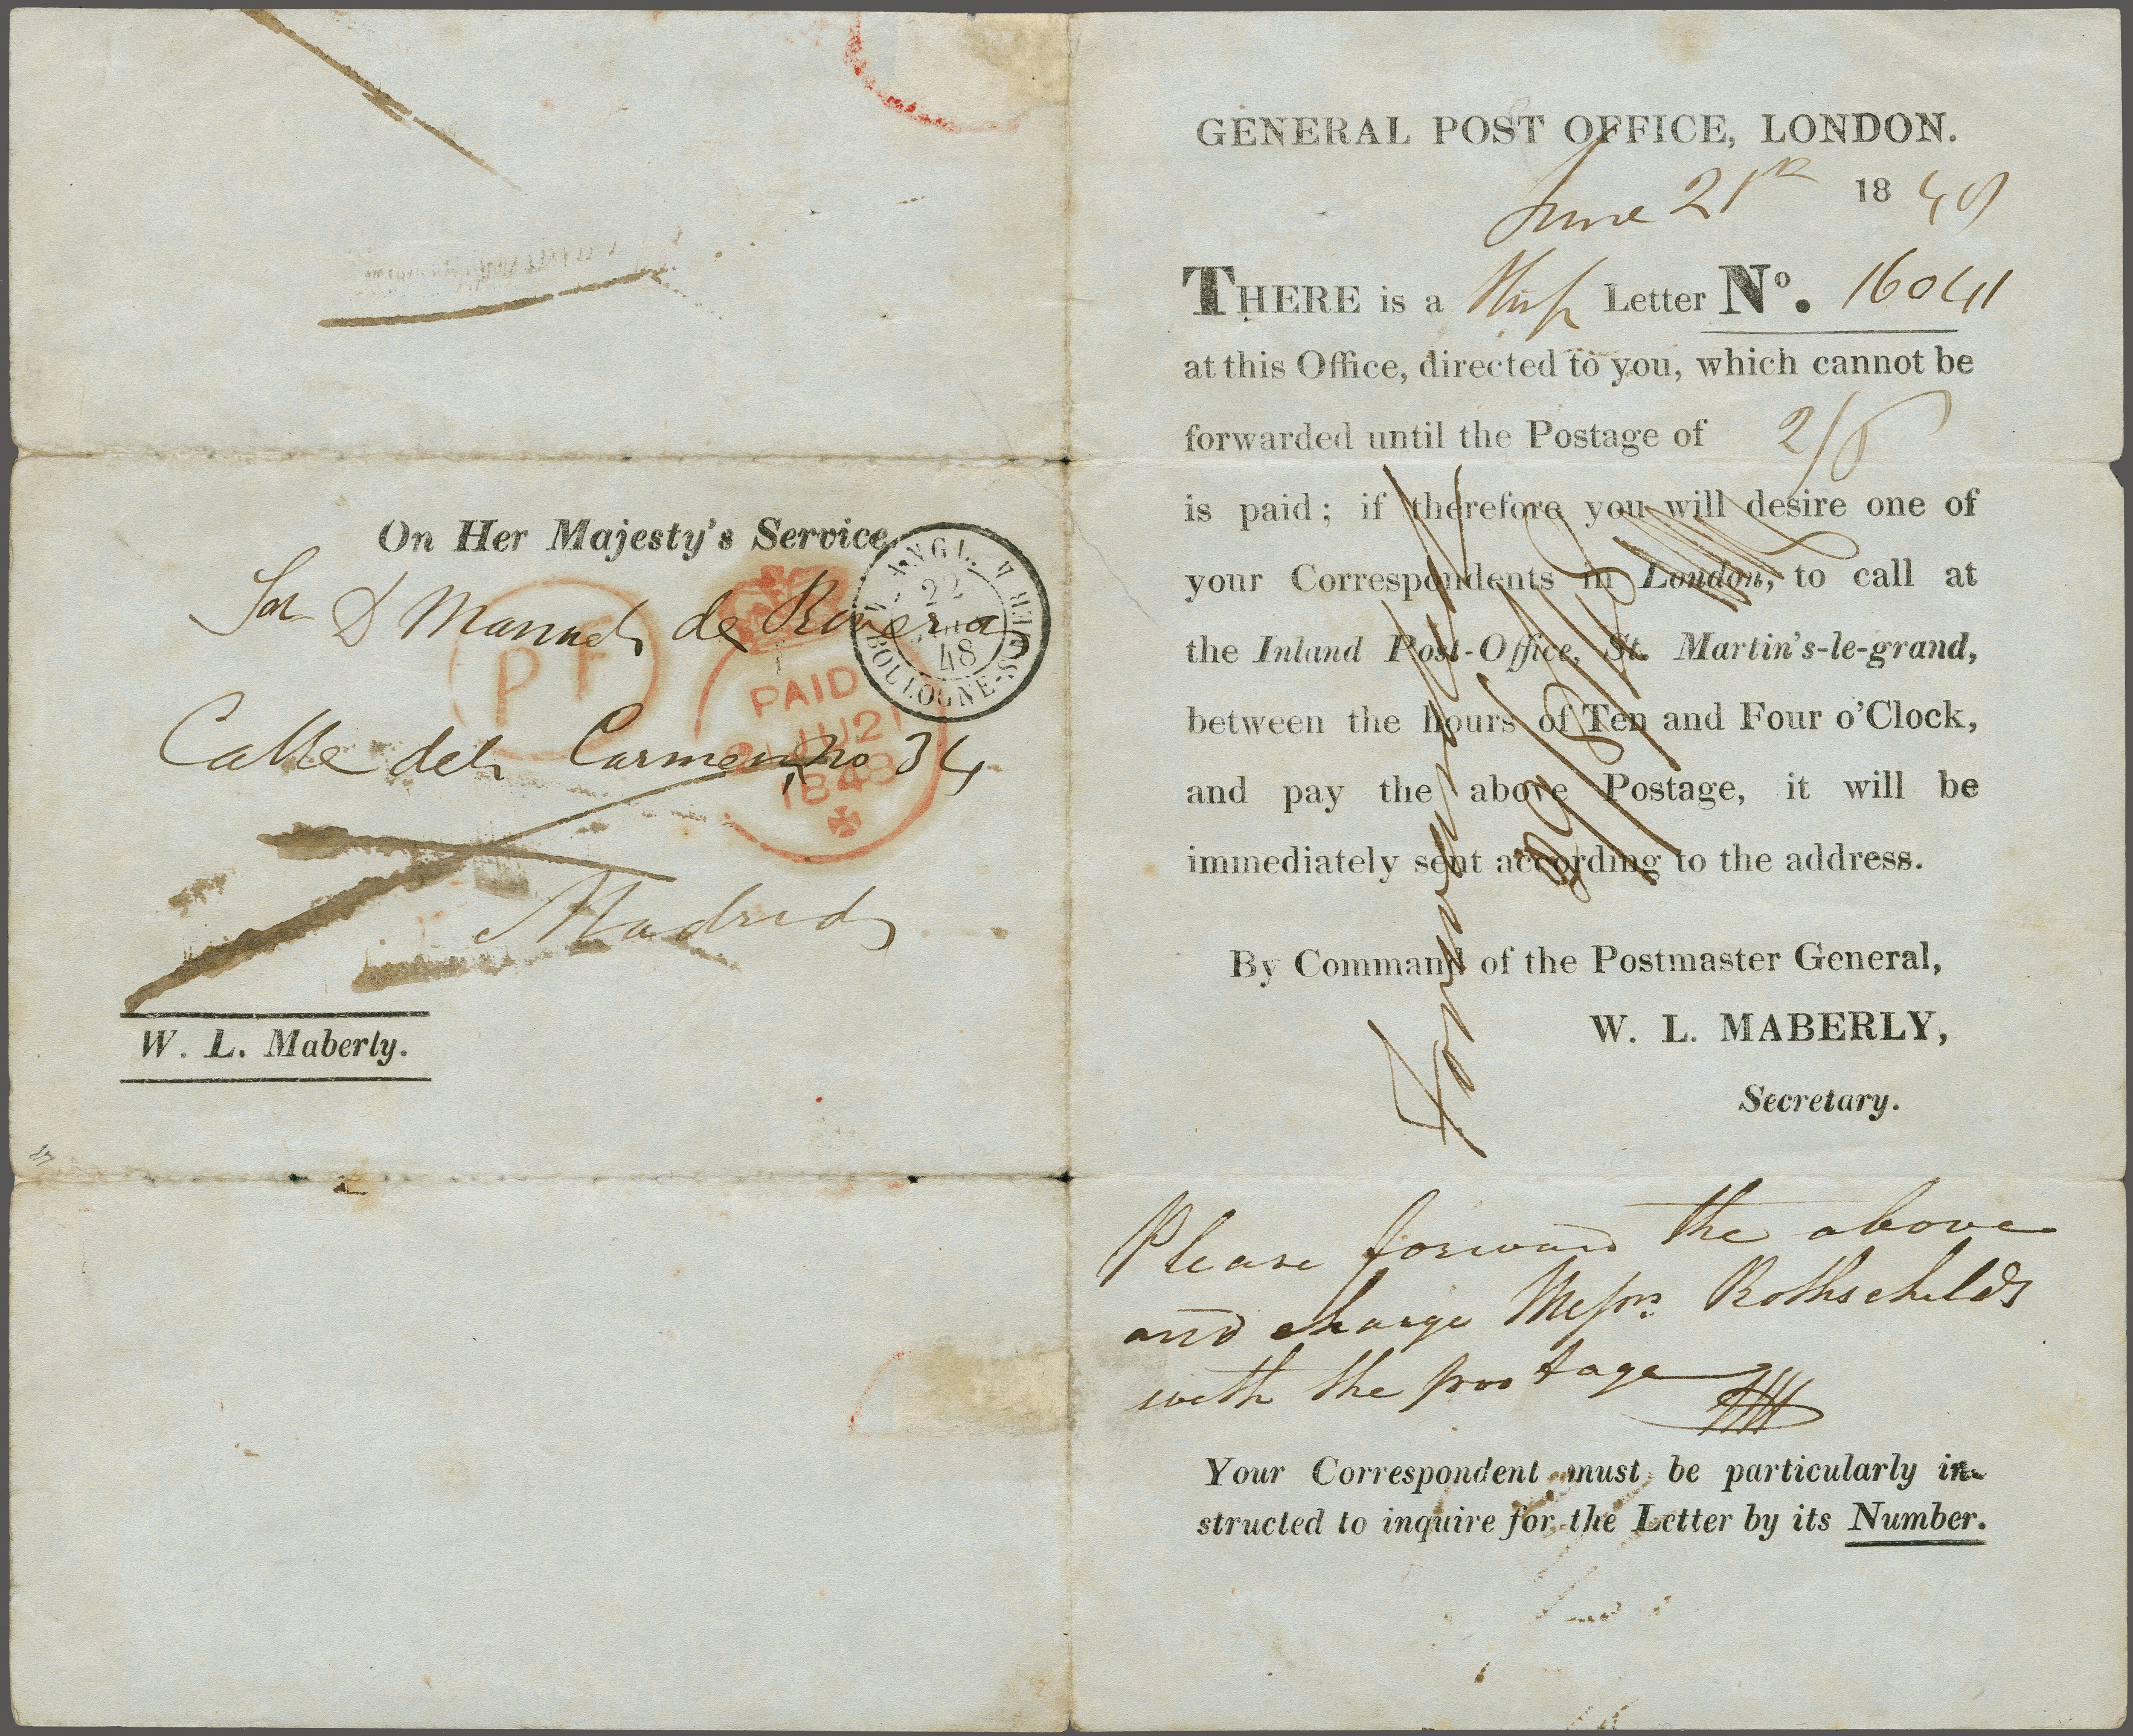 On Her Majesty's Service
Sor D Manuel de Rivera
Calle del Carmen, No 34
Madrid
W. L. Maberly.
PF
PAID
21 JU 21
1848
ANGL.
22
48
BOULOGNE-S-MER
GENERAL POST OFFICE, LONDON.
June 21st 1848
THERE is a Letter No. 16041
at this Office, directed to you, which cannot be
forwarded until the Postage of 2/8
is paid; if therefore you will desire one of
your Correspondents in London, to call at
the Inland Post-Office, St. Martin's-le-grand,
between the hours of Ten and Four o'Clock,
and pay the above Postage, it will be
immediately sent according to the address.
By Command of the Postmaster General,
W. L. MABERLY,
Secretary.
Forwarded
Please forward the above
and charge Messrs Rothschilds
with the postage
Your Correspondent must be particularly in-
structed to inquire for the Letter by its Number.